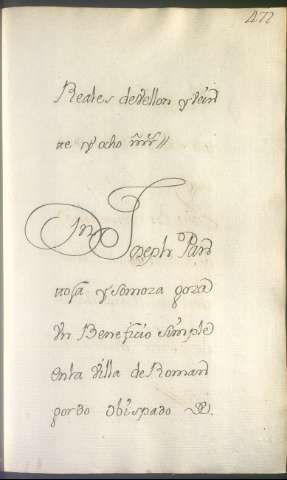 472
Reales de Vellon y Vein
te y ocho mrs //
Dn Joseph Pan
tosa y Somoza goza
Un Beneficio simple
en la Villa de Roman
gordo obispado De.